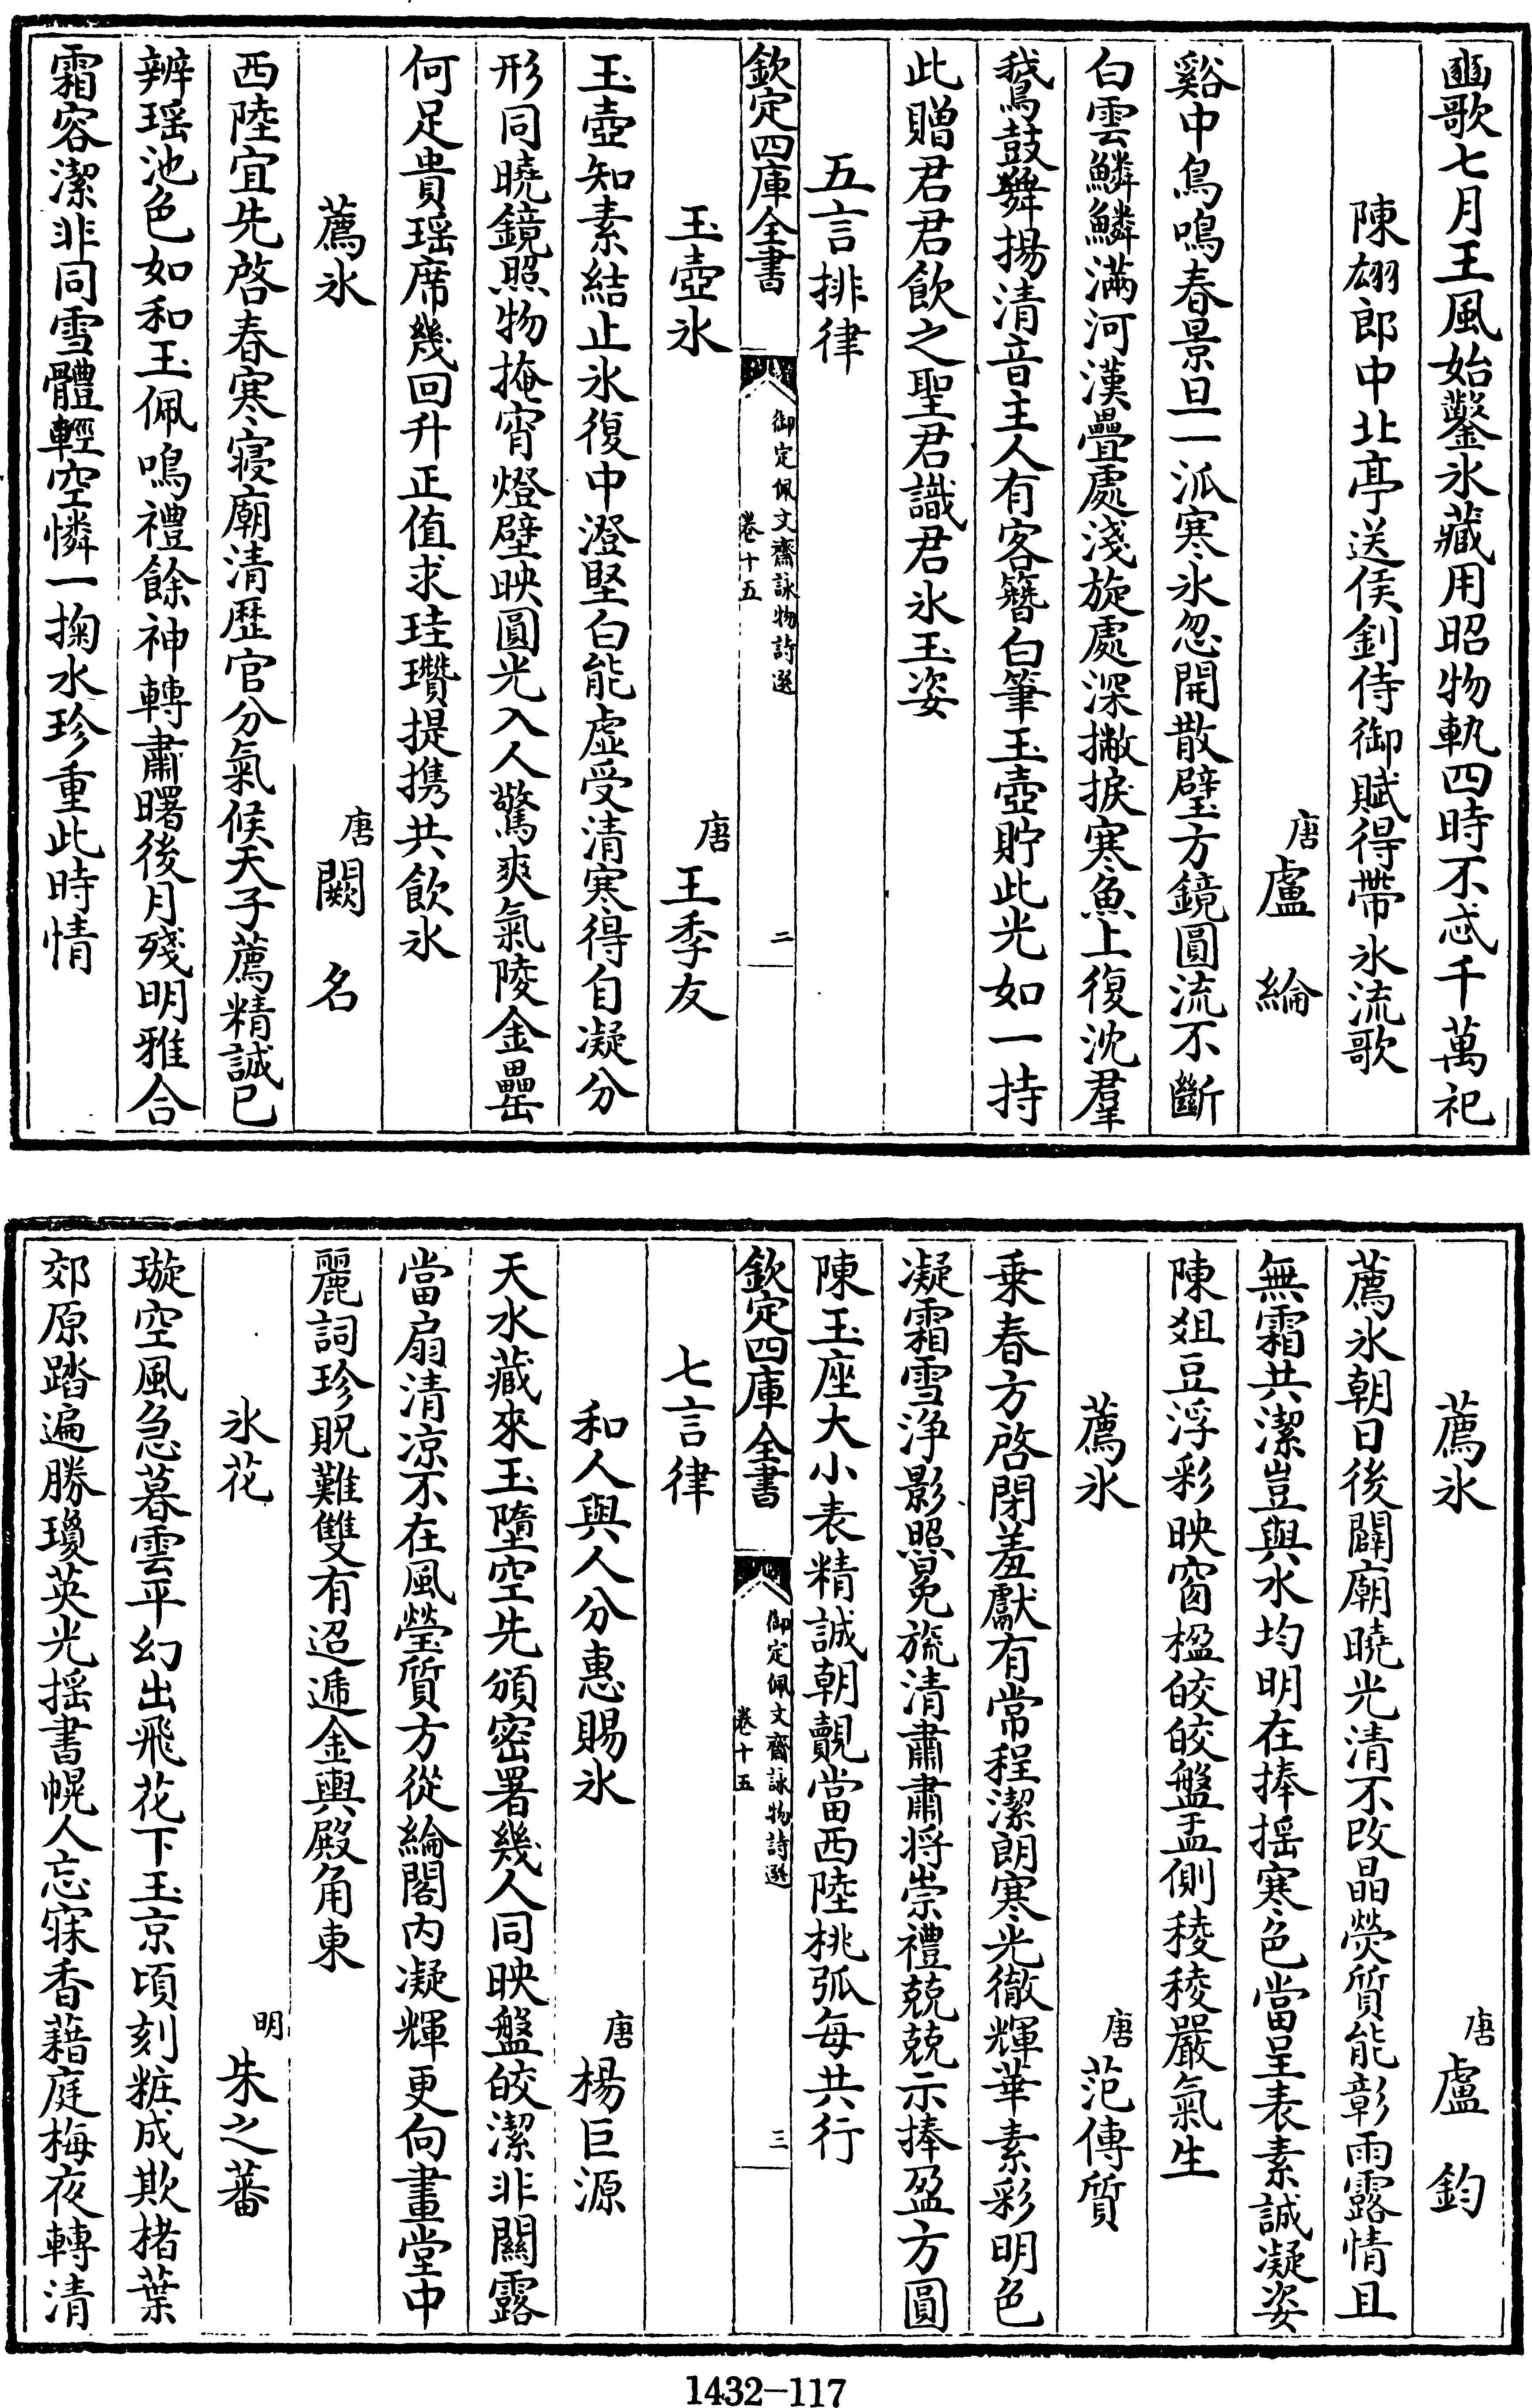 豳歌七月王風始鑿氷藏用昭物軌四時不忒千萬祀
陳翃郎中北亭送侯釗侍御賦得帶氷流歌
唐盧綸
谿中鳥鳴春景旦一派寒氷忽開散璧方鏡圓流不斷
白雲鱗鱗滿河漢疊處淺旋處深撇捩寒魚上復沈羣
鵞鼓舞揚清音主人有客簪白筆玉壺貯此光如一持
此贈君君飲之聖君識君氷玉姿
五言排律
欽定四庫全書
御定佩文齋詠物詩選
卷十五
二
玉壺氷
唐王季友
玉壺知素結止氷復中澄堅白能虛受清寒得自凝分
形同曉鏡照物掩宵燈壁映圓光入人驚爽氣陵金罍
何足貴瑶席幾回升正值求珪瓚提携共飲氷
薦氷
唐闕名
西陸宜先啓春寒寢廟清歷官分氣候天子薦精誠已
辨瑶池色如和玉佩鳴禮餘神轉肅曙後月殘明雅合
霜容潔非同雪體輕空憐一掬水珍重此時情
薦氷
唐盧鈞
薦氷朝日後闢廟曉光清不改晶熒質能彰雨露情且
無霜共潔豈與水均明在捧揺寒色當呈表素誠凝姿
陳俎豆浮彩映窗楹皎皎盤盂側稜稜嚴氣生
薦氷
唐范傳質
乗春方啓閉羞獻有常程潔朗寒光徹輝華素彩明色
凝霜雪浄影照冕旒清肅肅将崇禮兢兢示捧盈方圓
陳玉座大小表精誠朝覿當西陸桃弧毎共行
欽定四庫全書
御定佩文齋詠物詩選
卷十五
三
七言律
和人與人分惠賜氷
唐楊巨源
天水藏來玉墮空先頒密署幾人同映盤皎潔非關露
當扇清凉不在風瑩質方從綸閣内凝輝更向畫堂中
麗詞珍貺難雙有迢遞金輿殿角東
氷花
明朱之蕃
璇空風急暮雲平幻出飛花下玉京頃刻粧成欺楮葉
郊原踏遍勝瓊英光揺書幌人忘寐香藉庭梅夜轉清
1432-117